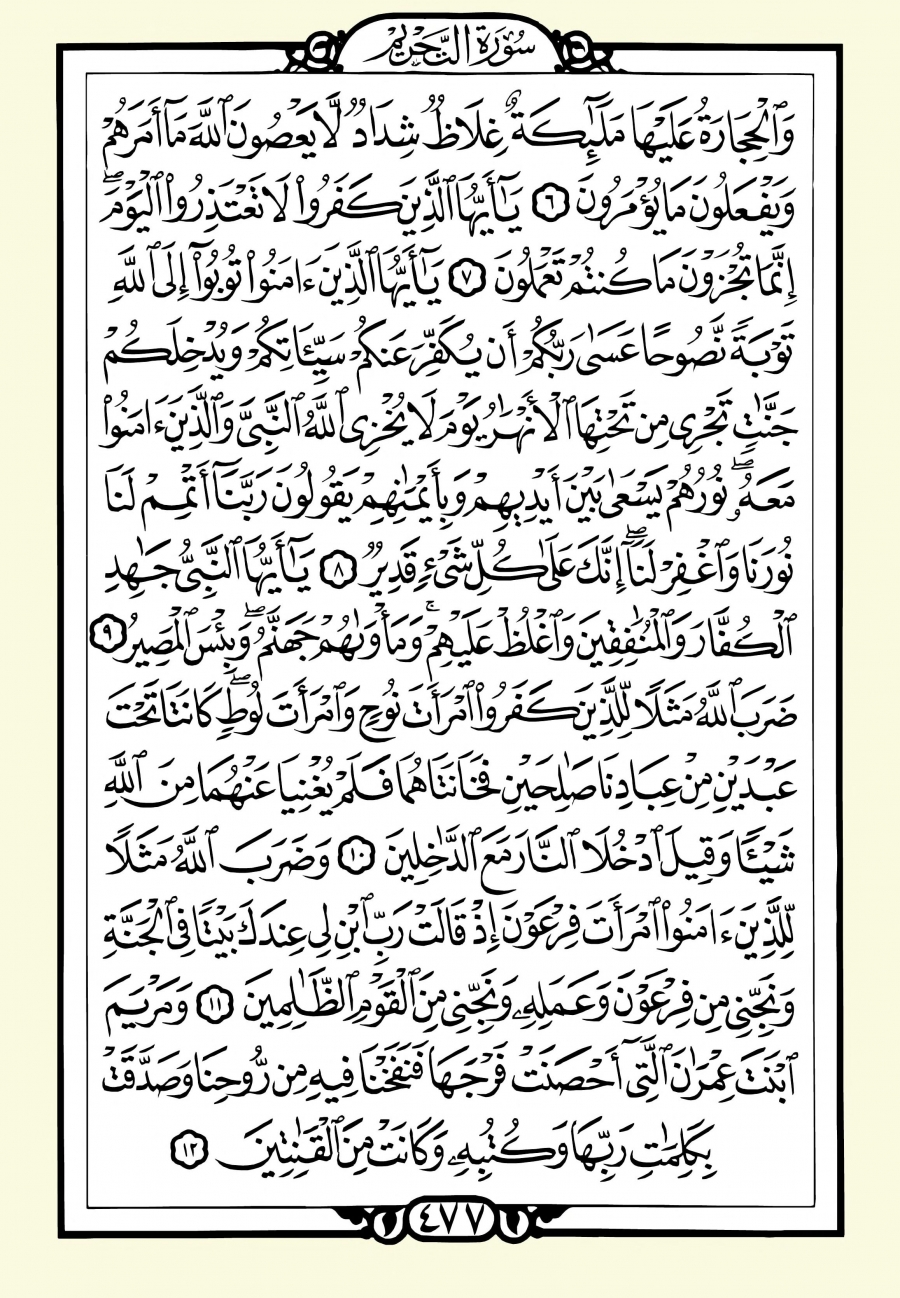 سُورَةُ التَّحْرِيمِ
وَٱلْحِجَارَةُ عَلَيْهَا مَلَٰٓئِكَةٌ غِلَاظٌ شِدَادٌ لَّا يَعْصُونَ ٱللَّهَ مَآ أَمَرَهُمْ
وَيَفْعَلُونَ مَا يُؤْمَرُونَ ٦ يَٰٓأَيُّهَا ٱلَّذِينَ كَفَرُوا۟ لَا تَعْتَذِرُوا۟ ٱلْيَوْمَ ۖ
إِنَّمَا تُجْزَوْنَ مَا كُنتُمْ تَعْمَلُونَ ٧ يَٰٓأَيُّهَا ٱلَّذِينَ ءَامَنُوا۟ تُوبُوٓا۟ إِلَى ٱللَّهِ
تَوْبَةً نَّصُوحًا عَسَىٰ رَبُّكُمْ أَن يُكَفِّرَ عَنكُمْ سَيِّـَٔاتِكُمْ وَيُدْخِلَكُمْ
جَنَّٰتٍ تَجْرِى مِن تَحْتِهَا ٱلْأَنْهَٰرُ يَوْمَ لَا يُخْزِى ٱللَّهُ ٱلنَّبِىَّ وَٱلَّذِينَ ءَامَنُوا۟
مَعَهُۥ ۖ نُورُهُمْ يَسْعَىٰ بَيْنَ أَيْدِيهِمْ وَبِأَيْمَٰنِهِمْ يَقُولُونَ رَبَّنَآ أَتْمِمْ لَنَا
نُورَنَا وَٱغْفِرْ لَنَآ ۖ إِنَّكَ عَلَىٰ كُلِّ شَىْءٍ قَدِيرٌ ٨ يَٰٓأَيُّهَا ٱلنَّبِىُّ جَٰهِدِ
ٱلْكُفَّارَ وَٱلْمُنَٰفِقِينَ وَٱغْلُظْ عَلَيْهِمْ ۚ وَمَأْوَىٰهُمْ جَهَنَّمُ ۖ وَبِئْسَ ٱلْمَصِيرُ ٩
ضَرَبَ ٱللَّهُ مَثَلًا لِّلَّذِينَ كَفَرُوا۟ ٱمْرَأَتَ نُوحٍ وَٱمْرَأَتَ لُوطٍ ۖ كَانَتَا تَحْتَ
عَبْدَيْنِ مِنْ عِبَادِنَا صَٰلِحَيْنِ فَخَانَتَاهُمَا فَلَمْ يُغْنِيَا عَنْهُمَا مِنَ ٱللَّهِ
شَيْـًٔا وَقِيلَ ٱدْخُلَا ٱلنَّارَ مَعَ ٱلدَّٰخِلِينَ ١٠ وَضَرَبَ ٱللَّهُ مَثَلًا
لِّلَّذِينَ ءَامَنُوا۟ ٱمْرَأَتَ فِرْعَوْنَ إِذْ قَالَتْ رَبِّ ٱبْنِ لِى عِندَكَ بَيْتًا فِى ٱلْجَنَّةِ
وَنَجِّنِى مِن فِرْعَوْنَ وَعَمَلِهِۦ وَنَجِّنِى مِنَ ٱلْقَوْمِ ٱلظَّٰلِمِينَ ١١ وَمَرْيَمَ
ٱبْنَتَ عِمْرَٰنَ ٱلَّتِىٓ أَحْصَنَتْ فَرْجَهَا فَنَفَخْنَا فِيهِ مِن رُّوحِنَا وَصَدَّقَتْ
بِكَلِمَٰتِ رَبِّهَا وَكُتُبِهِۦ وَكَانَتْ مِنَ ٱلْقَٰنِتِينَ ١٢
٤٧٧